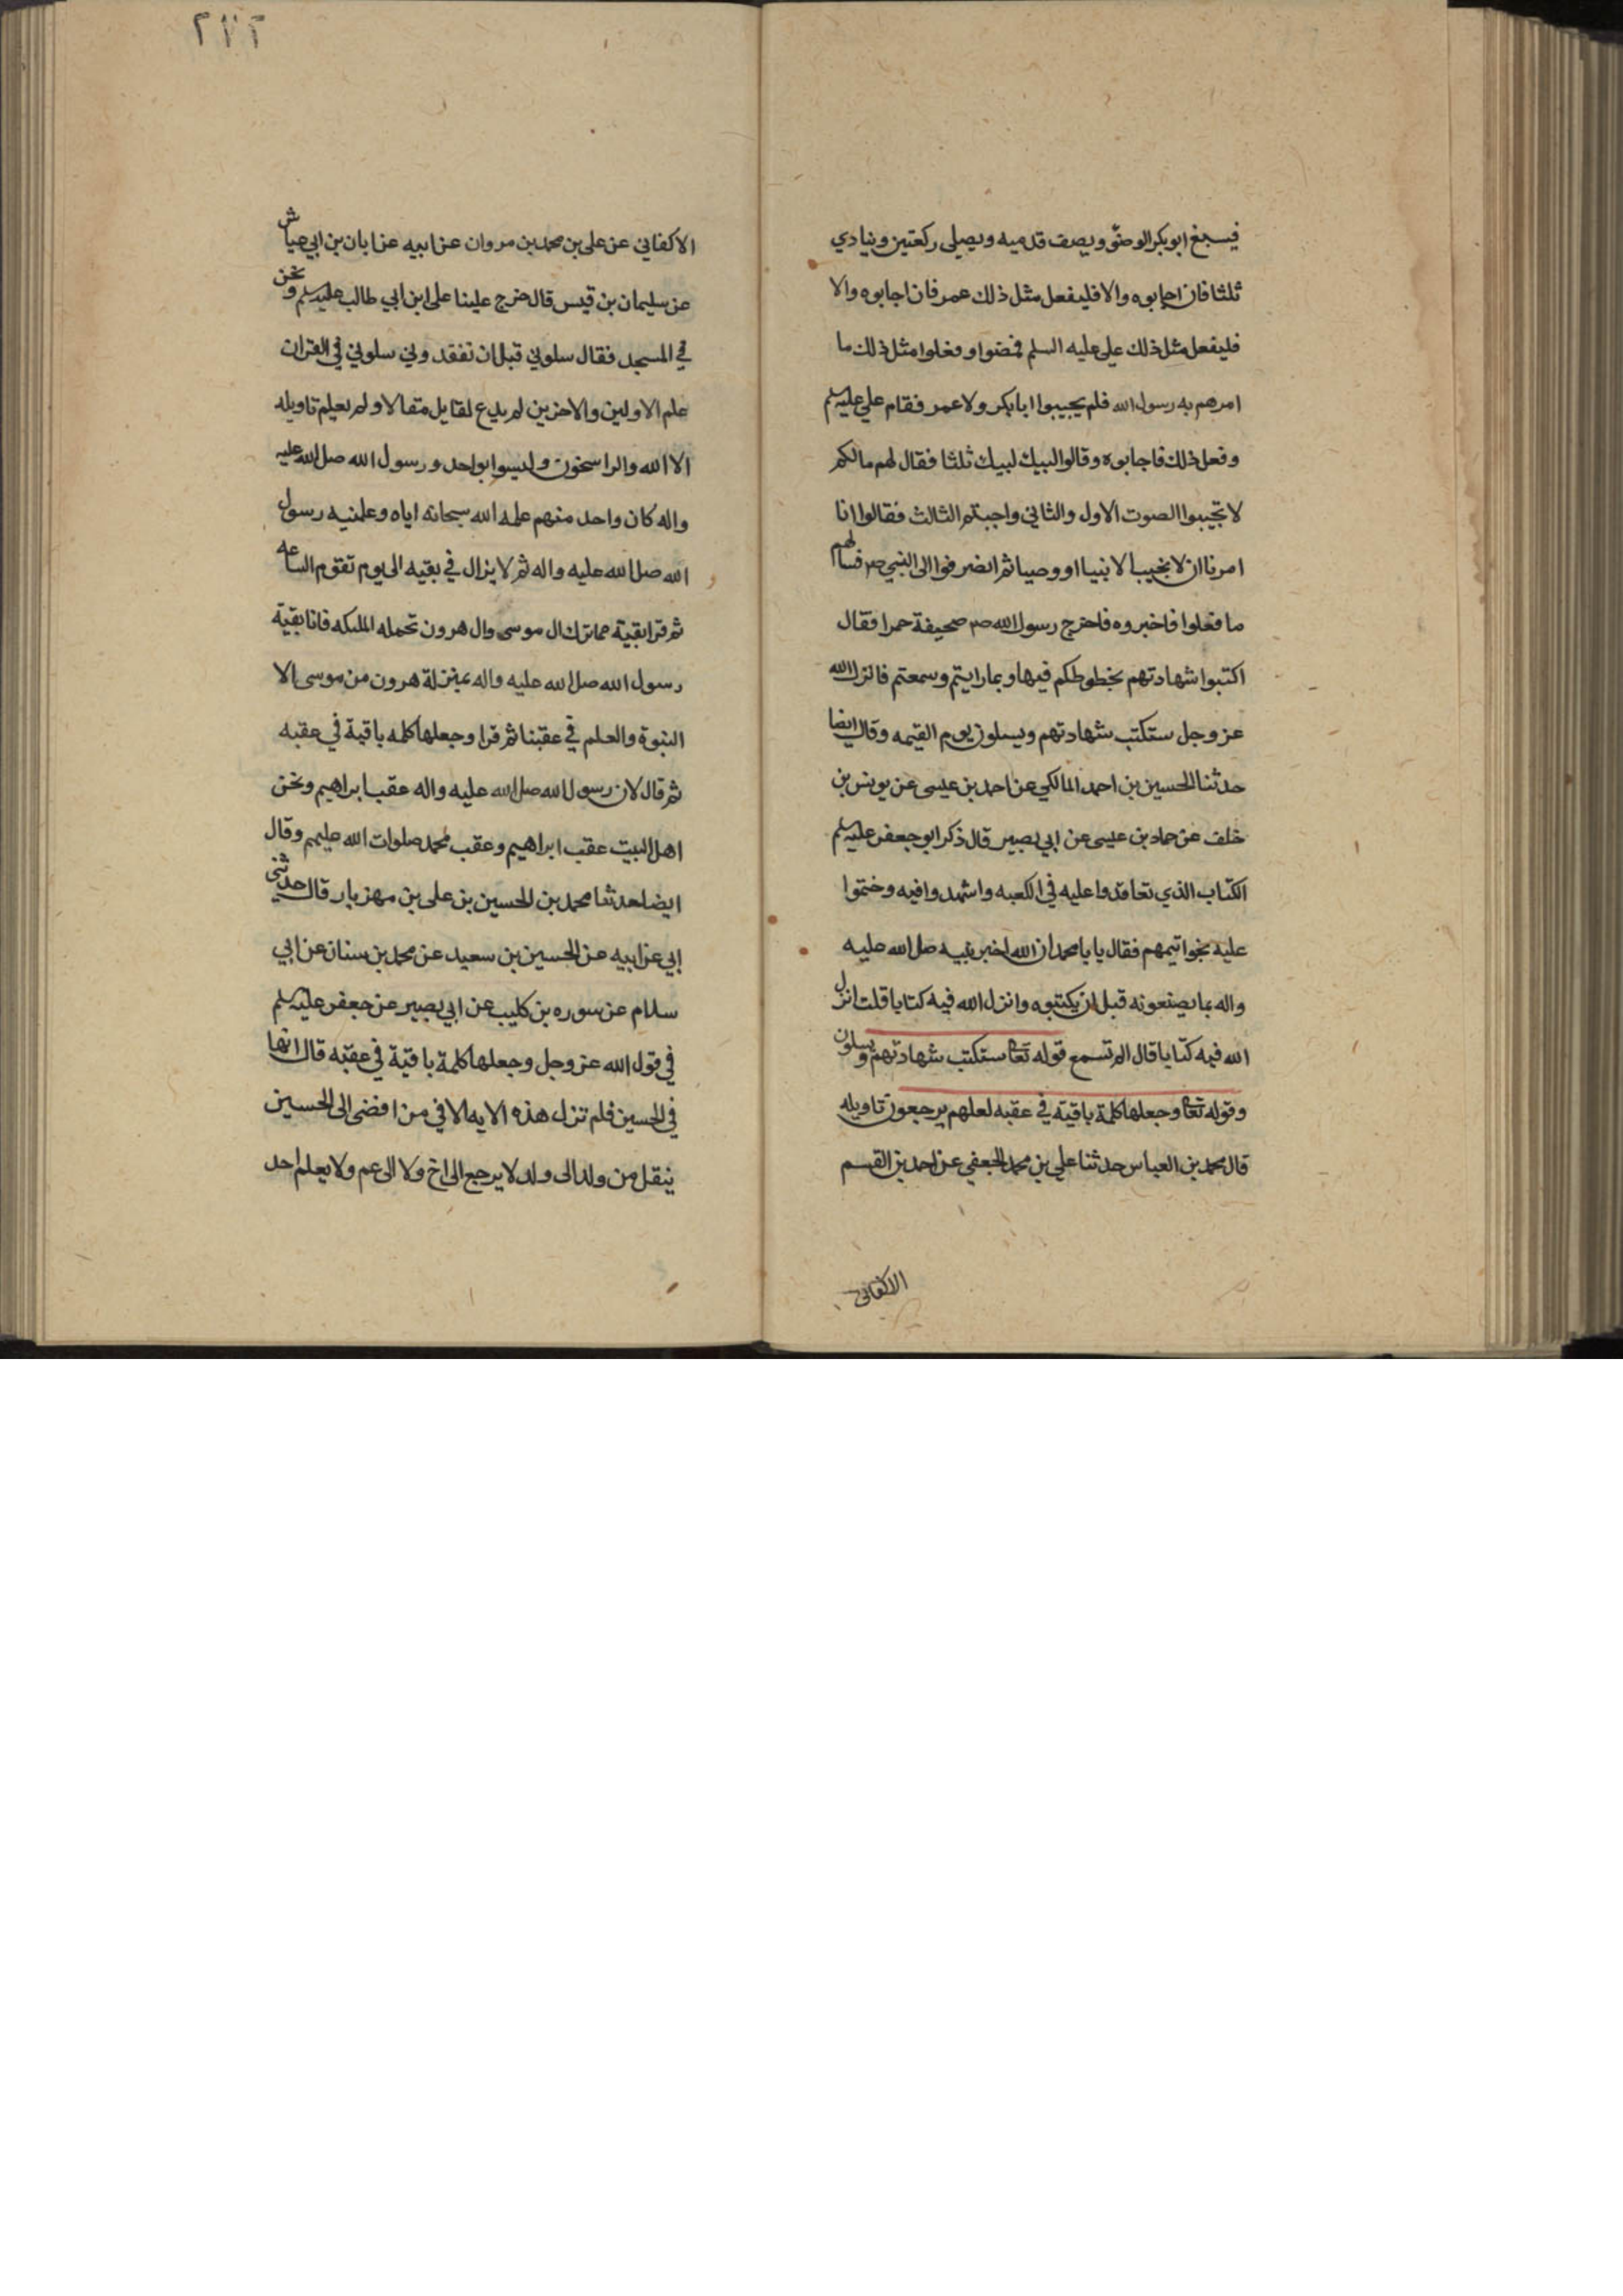 فيسبغ ابو بكر الوضو ويصف قدميه ويصلي ركعتين وينادي
ثلثا فان اجابوه والا فليفعل مثل ذلك عمر فان اجابوه والا
فليفعل مثل ذلك علي عليه السلم فمضوا وفعلوا مثل ذلك ما
امرهم به رسول الله فلم يجيبوا ابا بكر ولا عمر فقام علي عليه سلم
وفعل ذلك فاجابوه وقالوا لبيك لبيك ثلثا فقال لهم مالكم
لا تجيبوا الصوت الاول والثاني واجبتم الثالث فقالوا انا
امرنا ان لا نجيب الا نبيا او وصيا ثم انصرفوا الى النبي صم فسالهم
ما فعلوا فاخبروه فاخرج رسول الله صم صحيفة حمرا فقال
اكتبوا شهادتهم بخطوطكم فيها وبما رايتم وسمعتم فانزل الله
عز وجل ستكتب شهادتهم ويسلون يوم القيمه وقال ايضا
حدثنا الحسين بن احمد المالكي عن احمد بن عيسى عن يونس بن
خلف عن حماد بن عيسى عن ابي بصير قال ذكر ابو جعفر عليه سلم
الكتاب الذي تعاقدوا عليه في الكعبه واشهدوا فيه وختموا
عليه بخواتيمهم فقال يا با محمد ان الله اخبر نبيه صلى الله عليه
واله بما يصنعونه قبل ان يكتبوه وانزل الله فيه كتابا قلت انزل
الله فيه كتابا قال الم تسمع قوله تعا ستكتب شهادتهم ويسلون
وقوله تعا وجعلها كلمة باقية في عقبه لعلهم يرجعون تاويله
قال محمد بن العباس حدثنا علي بن محمد الجعفي عن احمد بن القسم
الاكفاني
الاكفاني عن علي بن محمد بن مروان عن ابيه عن ابان بن ابي عياش
عن سليمان بن قيس قال خرج علينا علي ابن ابي طالب عليه سلم ونحن
في المسجد فقال سلوني قبل ان تفقدوني سلوني في القران
علم الاولين والاخرين لم يدع لقايل مقالا ولم يعلم تاويله
الا الله والراسخون وليسوا بواحد ورسول الله صلى الله عليه
واله كان واحد منهم علمه الله سبحانه اياه وعلمنيه رسول
الله صلى الله عليه واله ثم لا يزال في بقيه الى يوم تقوم الساعه
ثم قرا بقية مما ترك ال موسى وال هرون تحمله الملىكه فانا بقية
رسول الله صلى الله عليه واله بمنزلة هرون من موسى الا
النبوة والعلم في عقبنا ثم قرا وجعلها كلمه باقية في عقبه
ثم قال لان رسول الله صلى الله عليه واله عقب ابراهيم ونحن
اهل البيت عقب ابراهيم وعقب محمد صلوات الله عليهم وقال
ايضا حدثنا محمد بن الحسين بن علي بن مهزيار قال حدثني
ابي عن ابيه عن الحسين بن سعيد عن محمد بن سنان عن ابي
سلام عن سوره بن كليب عن ابي بصير عن جعفر عليه سلم
في قول الله عز وجل وجعلها كلمة باقية في عقبه قال انها
في الحسين فلم تزل هذه الايه الا في من افضى الى الحسين
ينقل من ولد الى ولد لا يرجع الى اخ ولا الى عم ولا يعلم احد